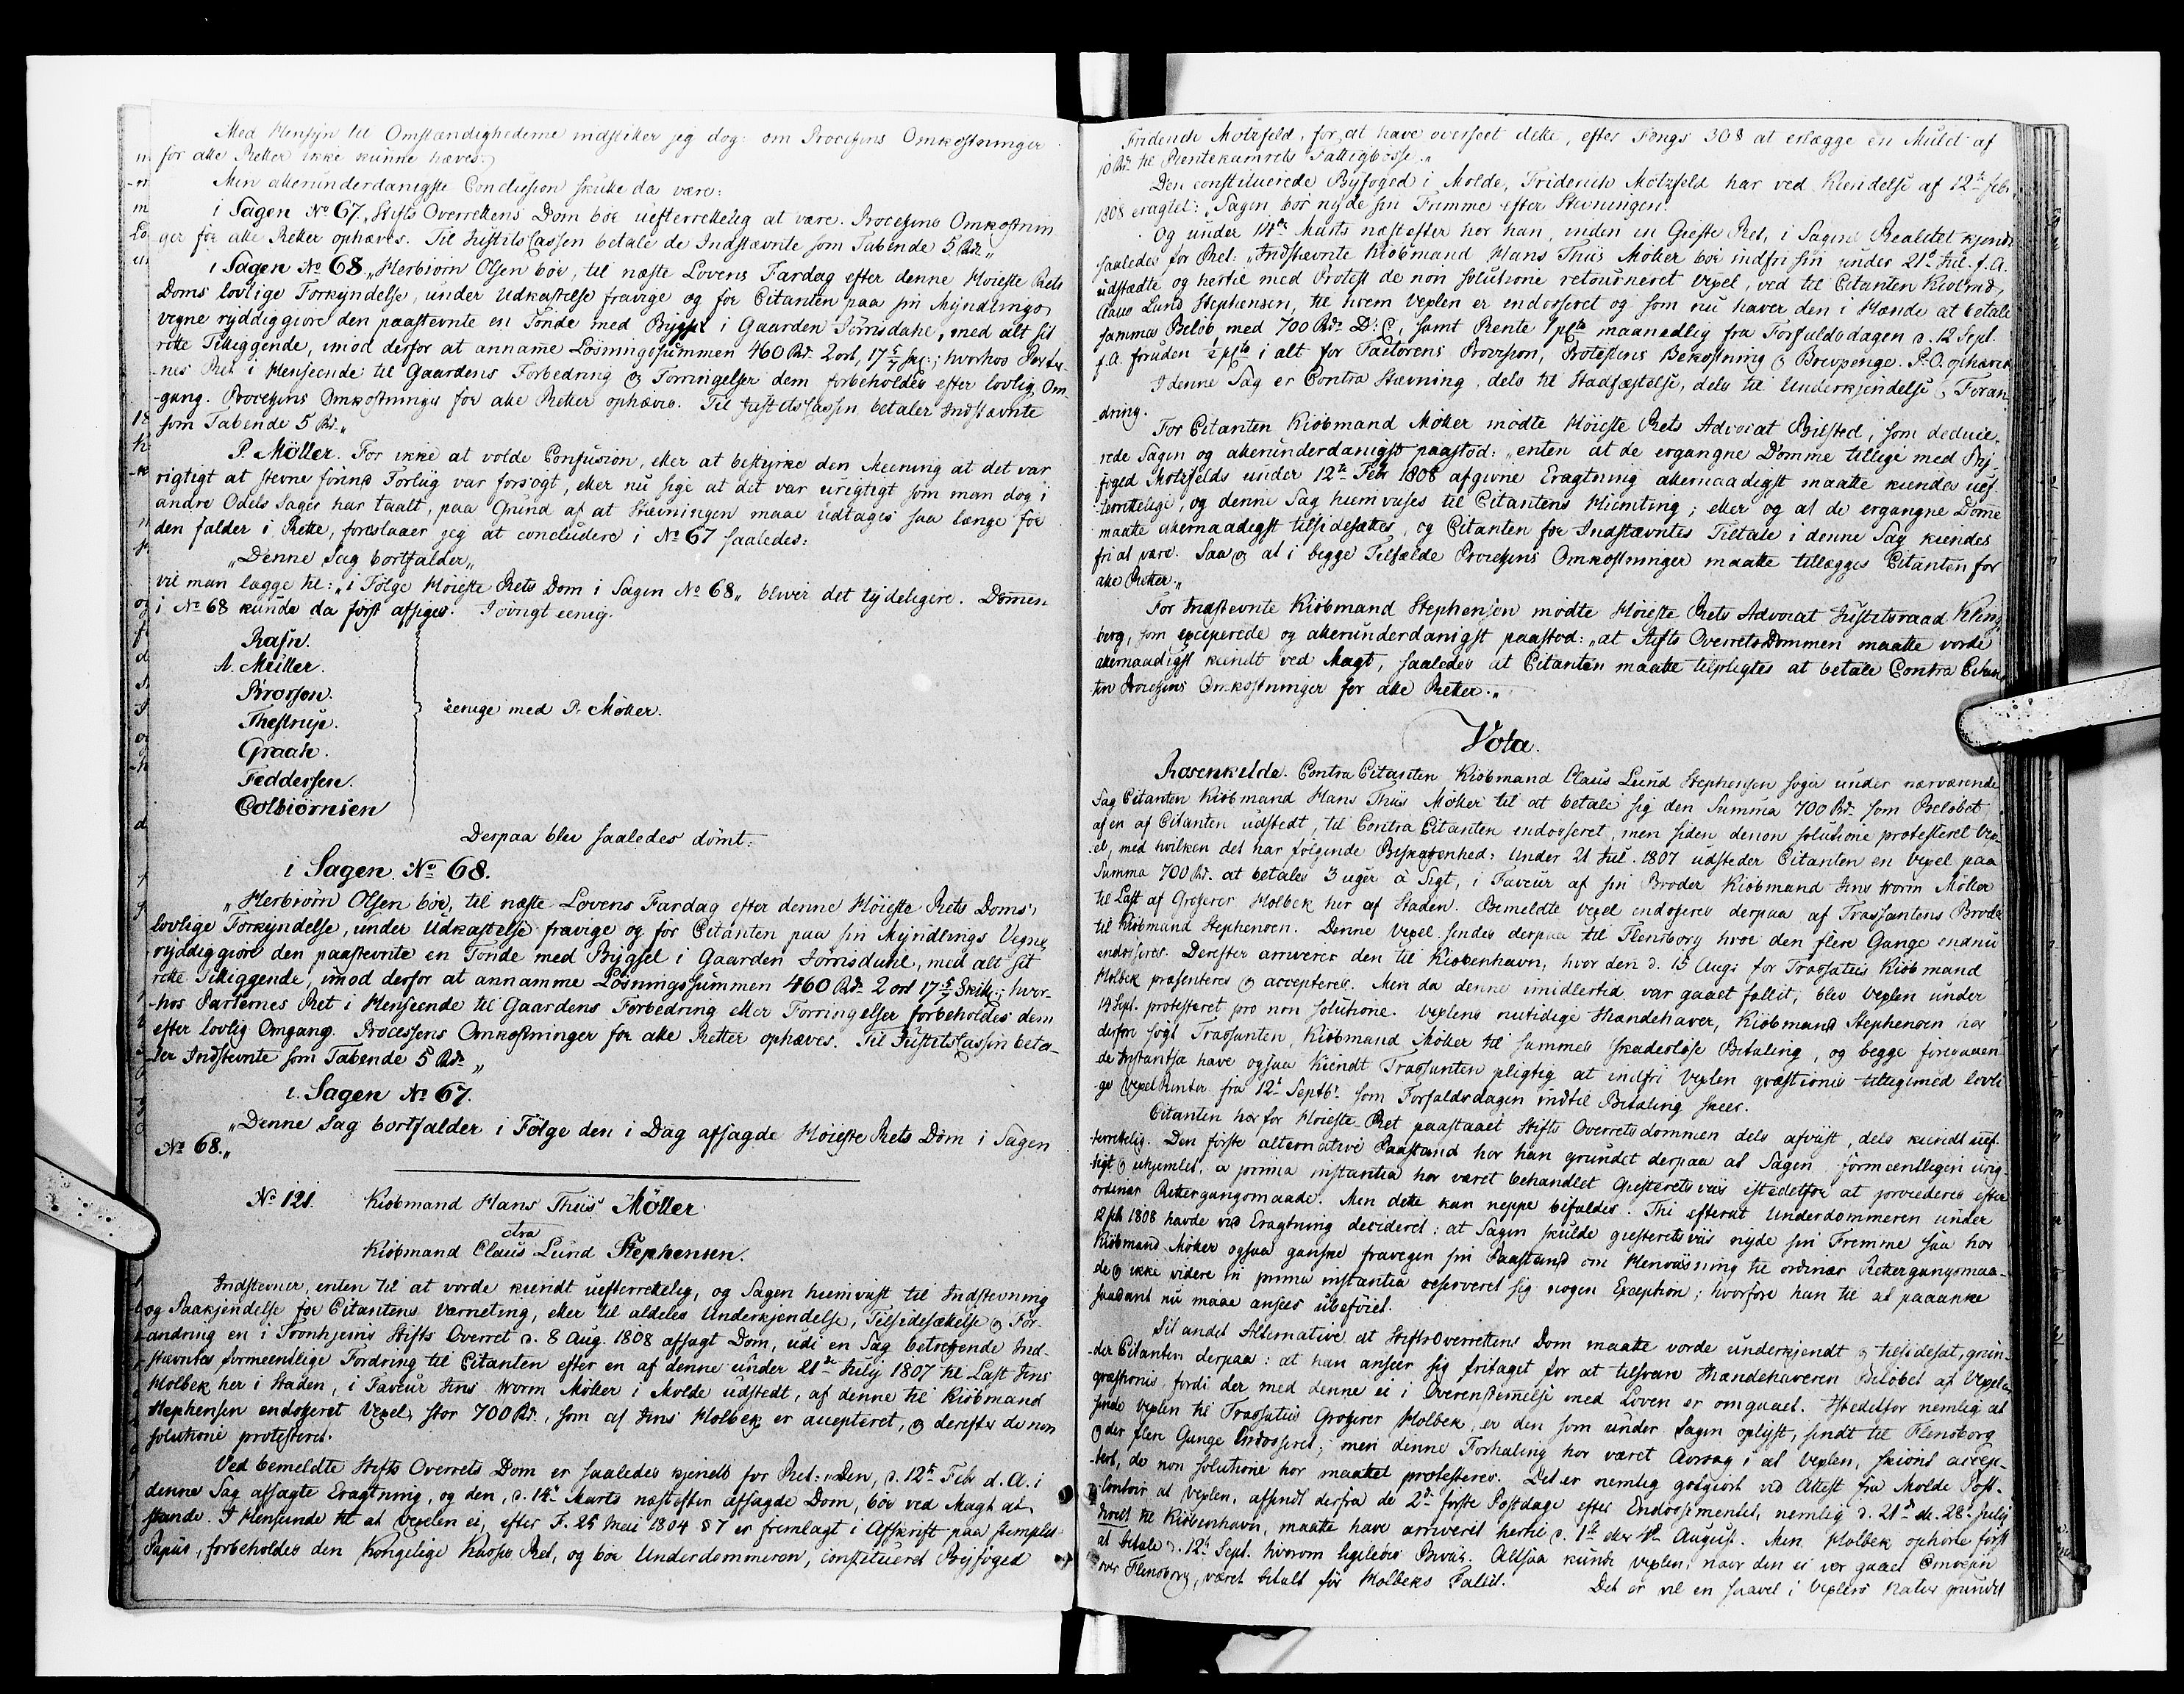 Med Hensyn til Omstændighederne indstiller jeg dog: om Processens Omkostninger
for alle Retter ikke kunne hæves.
Min allerunderdanigste Conclusion skulle da være:
i Sagen No 67. „Stifts Overrettens Dom bör uefterrettelig at være. Processens Omkostnin
ger for alle Retter ophæves. Til JustitsCassen betale de Indstævnte som Tabende 5 Rd.„
i Sagen No 68 „Herbiörn Olsen bör, til næste Lovens Fardag efter denne Höieste Rets
Doms lovlige Forkyndelse, under Udkastelse fravige og for Citanten paa sin Myndlings
vegne ryddiggiöre den paastevnte en Tönde med Bygsel i Gaarden Jörrisdahl, med alt sit
rette Tilliggende, imod derfor at anname Lösningssummen 460 Rd. 2 ort, 17 5/7 sk; hvorhos Parter-
nes Ret i Henseende til Gaardens Forbedring og Forringelser dem forbeholdes efter lovlig Om-
gang. Processens Omkostninger for alle Retter ophæves. Til JustitsCassen betaler Indstævnte
som Tabende 5 Rd.„
P. Möller. For ikke at volde Confusion, eller at bestyrke den Meening at det var
rigtigt at stevne förend Forlig var forsögt, eller nu sige at det var urigtigt som man dog i
andre Odels Sager har taalt, paa Grund af at Stævningen maae udtages saa længe för
den falder i Rette, foreslaaer jeg at concludere i No 67 saaledes:
„Denne Sag bortfalder„
vil man lægge til: „i Fölge Höieste Rets Dom i Sagen No 68„ bliver det tydeligere. Domen
i No 68 kunde da först afsiges. I övrigt eenig.
Rafn.
A. Müller.
Brorson.
Thestrup.
eenige med P. Möller.
Graah.
Feddersen.
Colbiörnsen
Derpaa blev saaledes dömt:
i Sagen No 68.
„Herbiörn Olsen bör, til næste Lovens Fardag efter denne Höieste Rets Doms
lovlige Forkyndelse, under Udkastelse fravige og for Citanten paa sin Myndlings Vegne
ryddiggiöre den paastevnte en Tönde med Bygsel i Gaarden Jorrisdahl, med alt sit
rette Tilliggende, imod derfor at annamme Lösningssummen 460 Rd. 2 ort 17 5/7 Skill; hvor-
hos Parternes Ret i Henseende til Gaardens Forbedring eller Forringelser forbeholdes dem
efter lovlig Omgang. Processens Omkostninger for alle Retter ophæves. Til JustitsCassen beta-
ler Indstevnte som Tabende 5 Rd.„
i Sagen No 67.
„Denne Sag bortfalder i Fölge den i Dag afsagde Höieste Rets Dom i Sagen
No 68.„
No 121. Kiöbmand Hans Thiis Möller
ctra
Kiöbmand Claus Lund Stephensen.
Indstevner, enten til at vorde kiendt uefterrettelig, og Sagen hiemviist til Indstevning
og Paakjendelse for Citantens Værneting, eller til aldeles Underkjendelse, Tilsidesættelse og For-
andring en i Tronhjems Stifts Overret d. 8 Aug. 1808 afsagt Dom, udi en Sag betreffende Ind-
stævntes formeentlige Fordring til Citanten efter en af denne under 21de July 1807 til Last Jens
Holbek her i Staden, i Faveur Jens Worm Möller i Molde udstedt, af denne til Kiöbmand
Stephensen endosseret Vexel, stor 700 Rd., som af Jens Holbek er accepteret, og derefter de non
solutione protesteret.
Ved bemeldte Stifts Overrets Dom er saaledes kjendt for Ret: „Den, d. 12te Febr d. A. i
denne Sag afsagte Eragtning, og den, d. 14de Marts næstefter afsagde Dom, bör ved Magt at
stande. I Henseende til at Vexelen ei, efter F. 25 Mai 1804 § 7 er fremlagt i Afskrift paa stemplet
Papiir, forbeholdes den Kongelige Kasse Ret, og bör Underdommeren, constitueret Byefoged
Friderich Motzfeld, for at have overseet dette, efter Fongs 308 at erlægge en Mulct af
10 Rd. til Rentekamrets Fattigbösse.„
Den constituerede Byfoged i Molde, Friderich Motzfeld har ved Kiendelse af 12te Febr
1808 eragtet: „Sagen bör nyde sin Fremme efter Stevningen.
Og under 14de Marts næstefter har han, inden en Gieste Ret, i Sagens Realitet kjendt
saaledes for Ret: „Indstævnte Kiöbmand Hans Thiis Möller bör indfri sin under 21de Jul. f. A.
udstædte og hertil med Protest de non solutione retourneret Vexel, ved til Citanten Kiöbmd
Claus Lund Stephensen, til hvem Vexlen er endosseret og som nu haver den i Hænde at betale
sammes Belöb, med 700 Rd. D: C., samt Rente 1 pCto maanedlig fra Forfaldsdagen d. 12 Sept.
f. A. foruden 1/2 pCto i alt for Factorens Provision, Protestens Bekostning og Brevpenge. P: O. ophæves
I denne Sag er Contra Stævning, dels til Stadfæstelse, dels til Underkjendelse og Foran-
dring.
For Citanten Kiöbmand Möller mödte Höieste Rets Advocat Bilsted, som deduce-
rede Sagen og allerunderdanigst paastod: „enten at de ergangne Domme tillige med By-
foged Motzfelds under 12te Febr 1808 afgivne Eragtning allernaadigst maatte kiendes uef-
terrettelige, og denne Sag hiemviises til Citantens Hiemting; eller og at de ergangne Domme
maatte allernaadigst tilsidesættes, og Citanten for Indstævntes Tiltale i denne Sag kiendes
fri at være. Saa og at i begge Tilfælde Processens Omkostninger maatte tillægges Citanten for
alle Retter.„
For Indstevnte Kiöbmand Stephensen mödte Höieste Rets Advocat Justitsraad Kling
berg, som exciperede og allerunderdanigst paastod: „at Stifts OverretsDommen maatte vorde
allernaadigst kiendt ved Magt, saaledes at Citanten maatte tilpligtes at betale Contra Citan
ten Processens Omkostninger for alle Retter.„
Vota.
Rosenkilde. Contra Citanten Kiöbmand Claus Lund Stephensen söger under nærværende
Sag Citanten Kiöbmand Hans Thiis Möller til at betale sig den Summa 700 Rd. som Belöbet
af en af Citanten udstedt, til Contra Citanten endosseret, men siden de non solutione protesteret Vex-
el, med hvilken det har fölgende Beskaffenhed: Under 21 Jul. 1807 udsteder Citanten en Vexel paa
Summa 700 Rd. at betales 3 uger à Sigt, i Faveur af sin Broder Kiöbmand Jens Worm Möller
til Last af Grosserer Holbek her af Staden. Bemeldte Vexel endosseres derpaa af Trassantens Broder
til Kiöbmand Stephensen. Denne Vexel sendes derpaa til Flensborg hvor den flere Gange endnu
endosseres. Derefter arriverer den til Kiöbenhavn, hvor den d. 15 Aug: for Trassatus Kiöbmand
Holbek præsenteres og accepteres. Men da denne imidlertid var gaaet fallit, blev Vexlen under
14 Sept. protesteret pro non solutione. Vexlens nutidige Ihændehaver, Kiöbmand Stephensen har
derfor sögt Trassanten, Kiöbmand Möller til sammes skadeslöse Betaling, og begge foregaaen-
de Instantser have ogsaa kiendt Trassanten pligtig at indfri Vexlen qvæstionis tilligemed lovli
ge Vexel Renter fra 12te Septbr. som Forfaldsdagen indtil Betaling skeer.
Citanten har for Höieste Ret paastaaet Stifts Overretsdommen dels afviist, dels kiendt uef-
terrettelig. Den förste alternative Paastand har han grundet derpaa at Sagen formeentligen urig-
tigt og uhjemlet, a prima instantia har været behandlet Giesteretsviis istedetfor at procederes efter
ordinær Rettergangsmaade. Men dette kan neppe bifaldes. Thi efterat Underdommeren under
12 feb 1808 havde ved Eragtning decideret: at Sagen skulde giesteretsviis nyde sin Fremme saa har
Kiöbmand Möller ogsaa ganske fravegen sin Paastand om Henviisning til ordinær Rettergangsmaa-
de og ikke videre in prima instantia reserveret sig nogen Exception; hvorfore han til at paaanke
saadant nu maae ansees ubeföiet.
Sit andet Alternative at StiftsOverrettens Dom maatte vorde underkjendt og tilsidesat, grun-
der Citanten derpaa: at han anseer sig fritaget for at tilsvare Ihændehaveren Belöbet af Vexelen
qvæstionis, fordi der med denne ei i Overenstemmelse med Loven er omgaaet. Istedetfor nemlig at
sende Vexlen til Trassatus Grosserer Holbek, er den som under Sagen oplyst, sendt til Flensborg
og der flere Gange Endosseret; men denne Forhaling har været Aarsag i at Vexlen, skiönt accep-
teret, de non solutione har maattet protesteres. Det er nemlig godtgiort ved Attest fra Molde Post-
contoir at Vexlen, afsendt derfra de 2de förste Postdage efter Endossementet, nemlig d. 21de el. 28de July
directe til Kiöbenhavn, maatte have arriveret hertil d. 1ste eller 4de August. Men Holbek ophörte först
at betale d. 12te Sept. hvorom ligeledes Beviis. Altsaa kunde Vexlen, naar den ei var gaaet Omveien
over Flensborg, været betalt för Holbeks Fallit. Det er vel en saavel i Vexlers Natur grundet